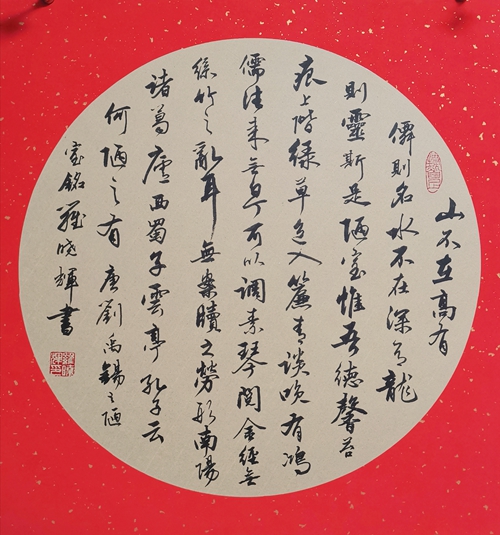 山不在高有
僊則名水不在深有龍
則靈斯是陋室惟吾德馨苔
痕上階綠草色入簾青談笑有鴻
儒往来無白丁可以調素琴閱金經無
絲竹之亂耳無案牘之勞形南陽
諸葛廬西蜀子雲亭孔子云
何陋之有 唐劉禹錫之陋
室銘 羅晓輝書